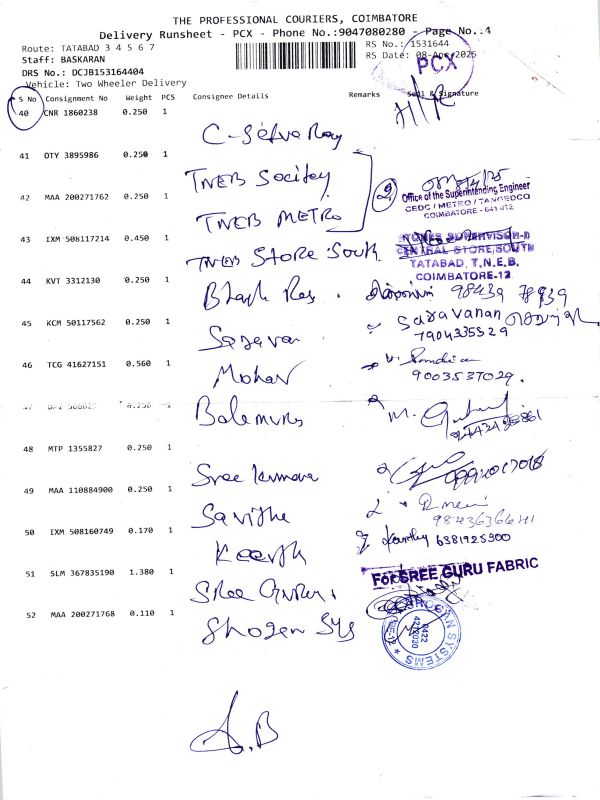 THE PROFESSIONAL COURIERS, COIMBATORE
Delivery Runsheet - PCX - Phone No.:9047080280 - Page No.:4
Route: TATABAD 3 4 5 6 7
RS No.: 1531644
Staff: BASKARAN
RS Date: 08-Apr-2025
DRS No.: DCJB153164404
PCX
Vehicle: Two Wheeler Delivery
S No Consignment No Weight PCS Consignee Details Remarks Seal & Signature
40 CNR 1860238 0.250 1
41 OTY 3895986 0.250 1
TNEB Society
42 MAA 200271762 0.250 1
Office of the Superintending Engineer
CEDC / METRO / TANGEDCO
COIMBATORE - 641 012
TNEB METRO
43 IXM 508117214 0.450 1
CENTRAL STORE/SOUTH
TATABAD, T.N.E.B.
COIMBATORE-12
TNEB Store South
44 KVT 3312130 0.250 1
98439 78939
45 KCM 50117562 0.250 1
Saravanan
7904335529
Saravan
46 TCG 41627151 0.560 1
Mohan
9003537029.
M.
48 MTP 1355827 0.250 1
Sree Kumara
49 MAA 110884900 0.250 1
Savithe
50 IXM 508160749 0.170 1
6381925900
Keerth
51 SLM 367835190 1.380 1
For SREE GURU FABRIC
Sree Guru
52 MAA 200271768 0.110 1
Shogen Sys
SHOGAN SYSTEMS
0422
4212030
A.B